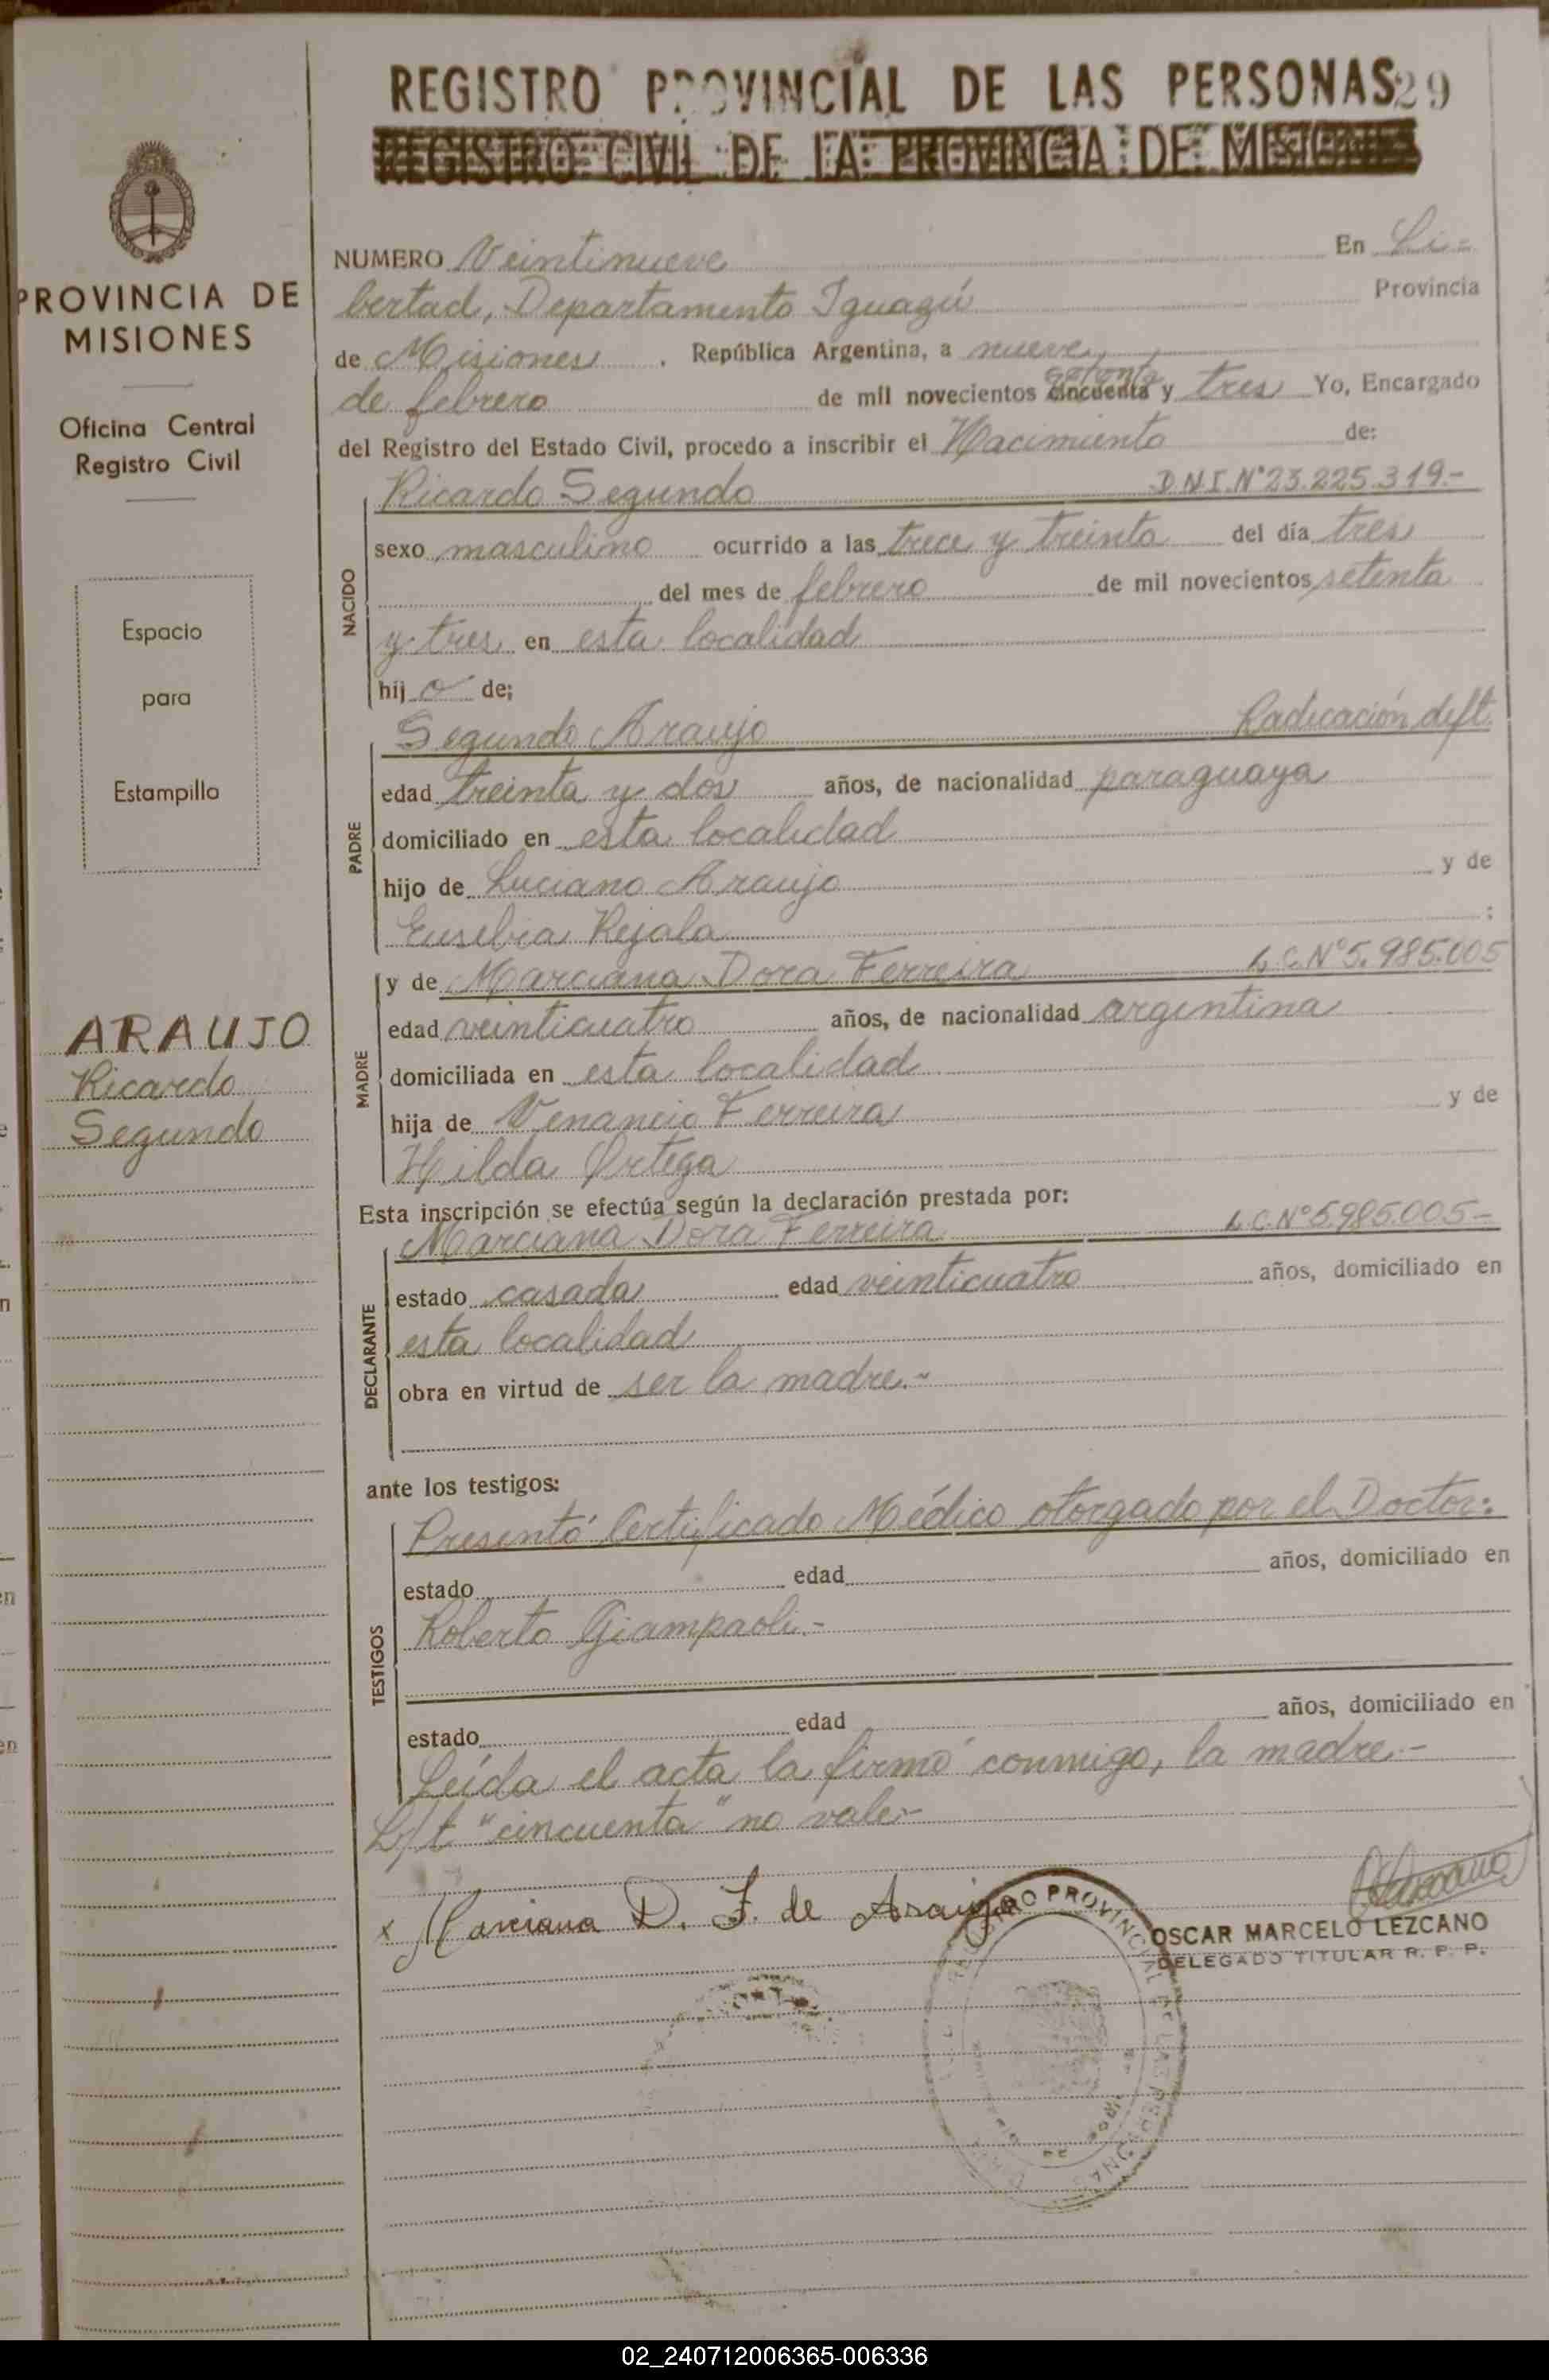 REGISTRO PROVINCIAL DE LAS PERSONAS 29
REGISTRO CIVIL DE LA PROVINCIA DE MISIONES
PROVINCIA DE
MISIONES
Oficina Central
Registro Civil
Espacio
para
Estampilla
ARAUJO
Ricardo
Segundo
NUMERO Veintinueve En Li=
bertad, Departamento Iguazú Provincia
de Misiones . República Argentina, a nueve
de febrero de mil novecientos cincuenta setenta y tres Yo, Encargado
del Registro del Estado Civil, procedo a inscribir el Nacimiento de:
NACIDO
Ricardo Segundo D.N.I.N°23.225.319.-
sexo masculino ocurrido a las trece y treinta del día tres
del mes de febrero de mil novecientos setenta
y tres en esta localidad
hij o de;
PADRE
Segundo Araujo Radicación deft.
edad treinta y dos años, de nacionalidad paraguaya
domiciliado en esta localidad
hijo de Luciano Araujo y de
Eusebia Rejala :
MADRE
y de Marciana Dora Ferreira L.C.N°5.985.005
edad veinticuatro años, de nacionalidad argentina
domiciliada en esta localidad
hija de Venancio Ferreira y de
Hilda Ortega
Esta inscripción se efectúa según la declaración prestada por:
DECLARANTE
Marciana Dora Ferreira L.C.N°5.985.005-
estado casada edad veinticuatro años, domiciliado en
esta localidad
obra en virtud de ser la madre.-
ante los testigos:
TESTIGOS
Presentó Certificado Médico otorgado por el Doctor:
estado edad años, domiciliado en
Roberto Giampaoli.-
estado edad años, domiciliado en
Leída el acta la firmó conmigo, la madre.-
L/t "cincuenta" no vale.-
x Marciana D. F. de Araujo
OSCAR MARCELO LEZCANO
DELEGADO TITULAR R. P. P.
REGISTRO PROVINCIAL DE LAS PERSONAS
02_240712006365-006336